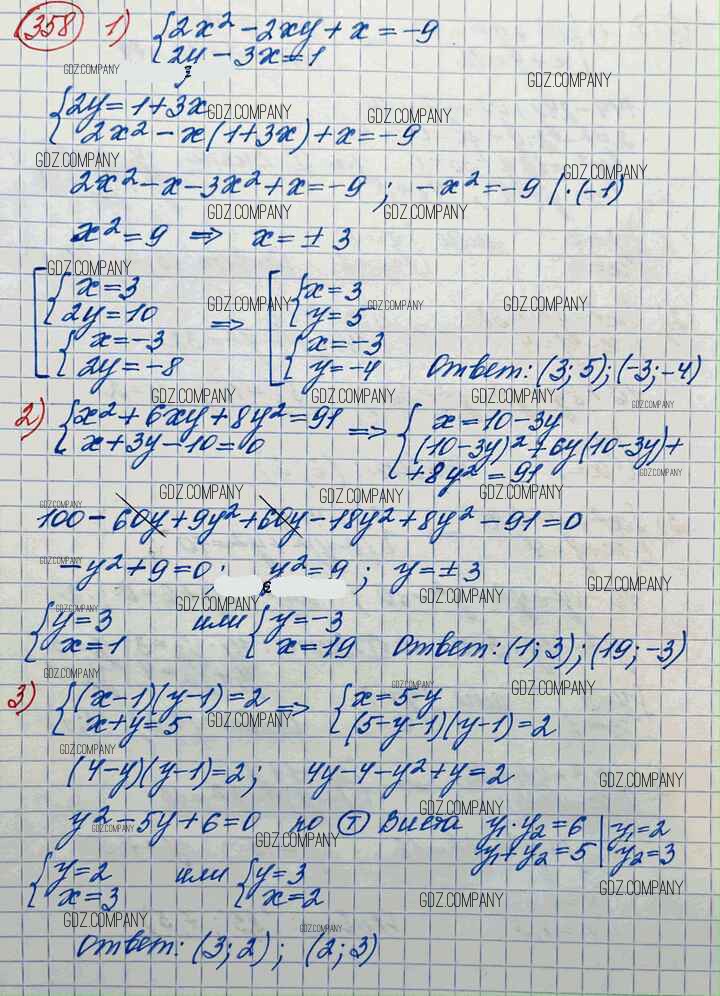 358 1) {2x² - 2xy + x = -9
{2y - 3x = 1
GDZ.COMPANY GDZ.COMPANY
{2y = 1 + 3x GDZ.COMPANY GDZ.COMPANY
{2x² - x(1+3x) + x = -9
GDZ.COMPANY GDZ.COMPANY
2x² - x - 3x² + x = -9 ; -x² = -9 | · (-1)
GDZ.COMPANY GDZ.COMPANY
x² = 9 => x = ± 3
GDZ.COMPANY
[{x = 3 => [{x = 3
GDZ.COMPANY GDZ.COMPANY GDZ.COMPANY
{2y = 10 {y = 5
{x = -3 {x = -3
{2y = -8 {y = -4 Ответ: (3; 5); (-3; -4)
GDZ.COMPANY GDZ.COMPANY GDZ.COMPANY GDZ.COMPANY
2) {x² + 6xy + 8y² = 91 => {x = 10 - 3y
{x + 3y - 10 = 0 {(10-3y)² + 6y(10-3y) +
+ 8y² = 91 GDZ.COMPANY
GDZ.COMPANY GDZ.COMPANY GDZ.COMPANY GDZ.COMPANY
100 - 60y + 9y² + 60y - 18y² + 8y² - 91 = 0
GDZ.COMPANY
-y² + 9 = 0; y² = 9 ; y = ± 3
GDZ.COMPANY GDZ.COMPANY GDZ.COMPANY GDZ.COMPANY
{y = 3 или {y = -3
{x = 1 {x = 19 Ответ: (1; 3); (19; -3)
GDZ.COMPANY GDZ.COMPANY GDZ.COMPANY
3) {(x-1)(y-1) = 2 => {x = 5 - y
{x + y = 5 GDZ.COMPANY {(5-y-1)(y-1) = 2
GDZ.COMPANY
(4-y)(y-1) = 2; 4y - 4 - y² + y = 2
GDZ.COMPANY
GDZ.COMPANY
y² - 5y + 6 = 0 по Т Виета y₁ · y₂ = 6 | y₁ = 2
GDZ.COMPANY GDZ.COMPANY
y₁ + y₂ = 5 | y₂ = 3
{y = 2 или {y = 3
{x = 3 {x = 2 GDZ.COMPANY GDZ.COMPANY
GDZ.COMPANY GDZ.COMPANY
Ответ: (3; 2) ; (2; 3)